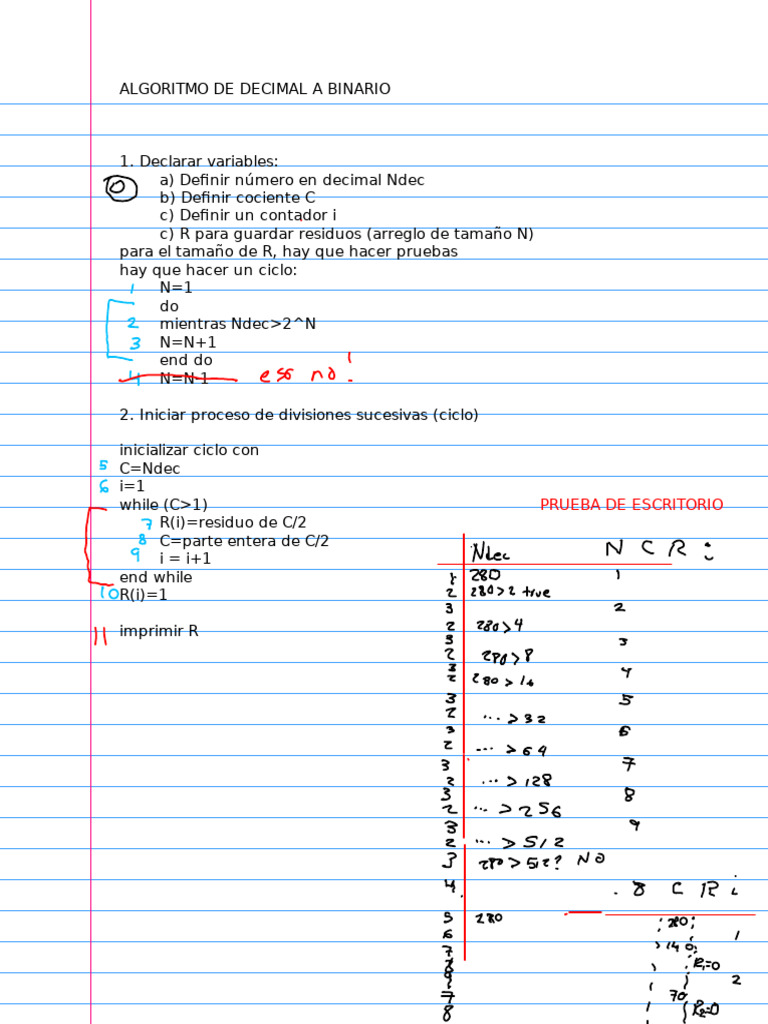 ALGORITMO DE DECIMAL A BINARIO
1. Declarar variables:
a) Definir número en decimal Ndec
b) Definir cociente C
c) Definir un contador i
c) R para guardar residuos (arreglo de tamaño N)
para el tamaño de R, hay que hacer pruebas
hay que hacer un ciclo:
1 N=1
do
2 mientras Ndec>2^N
3 N=N+1
end do
4 N=N-1 eso no!
2. Iniciar proceso de divisiones sucesivas (ciclo)
inicializar ciclo con
5 C=Ndec
6 i=1
while (C>1)
7 R(i)=residuo de C/2
8 C=parte entera de C/2
9 i = i+1
end while
10 R(i)=1
11 imprimir R
PRUEBA DE ESCRITORIO
Ndec N C R i
1 280 1
2 280>2 true
3 2
2 280>4
3 3
2 280>8
3 4
2 280>16
3 5
2 ... >32
3 6
2 ... >64
3 7
2 ... >128
3 8
2 ... >256
3 9
2 ... >512
3 280>512? NO
4. 8 C R i
5 280 280
6 1
7 140
8 R1=0
9 2
7 70
8 R2=0